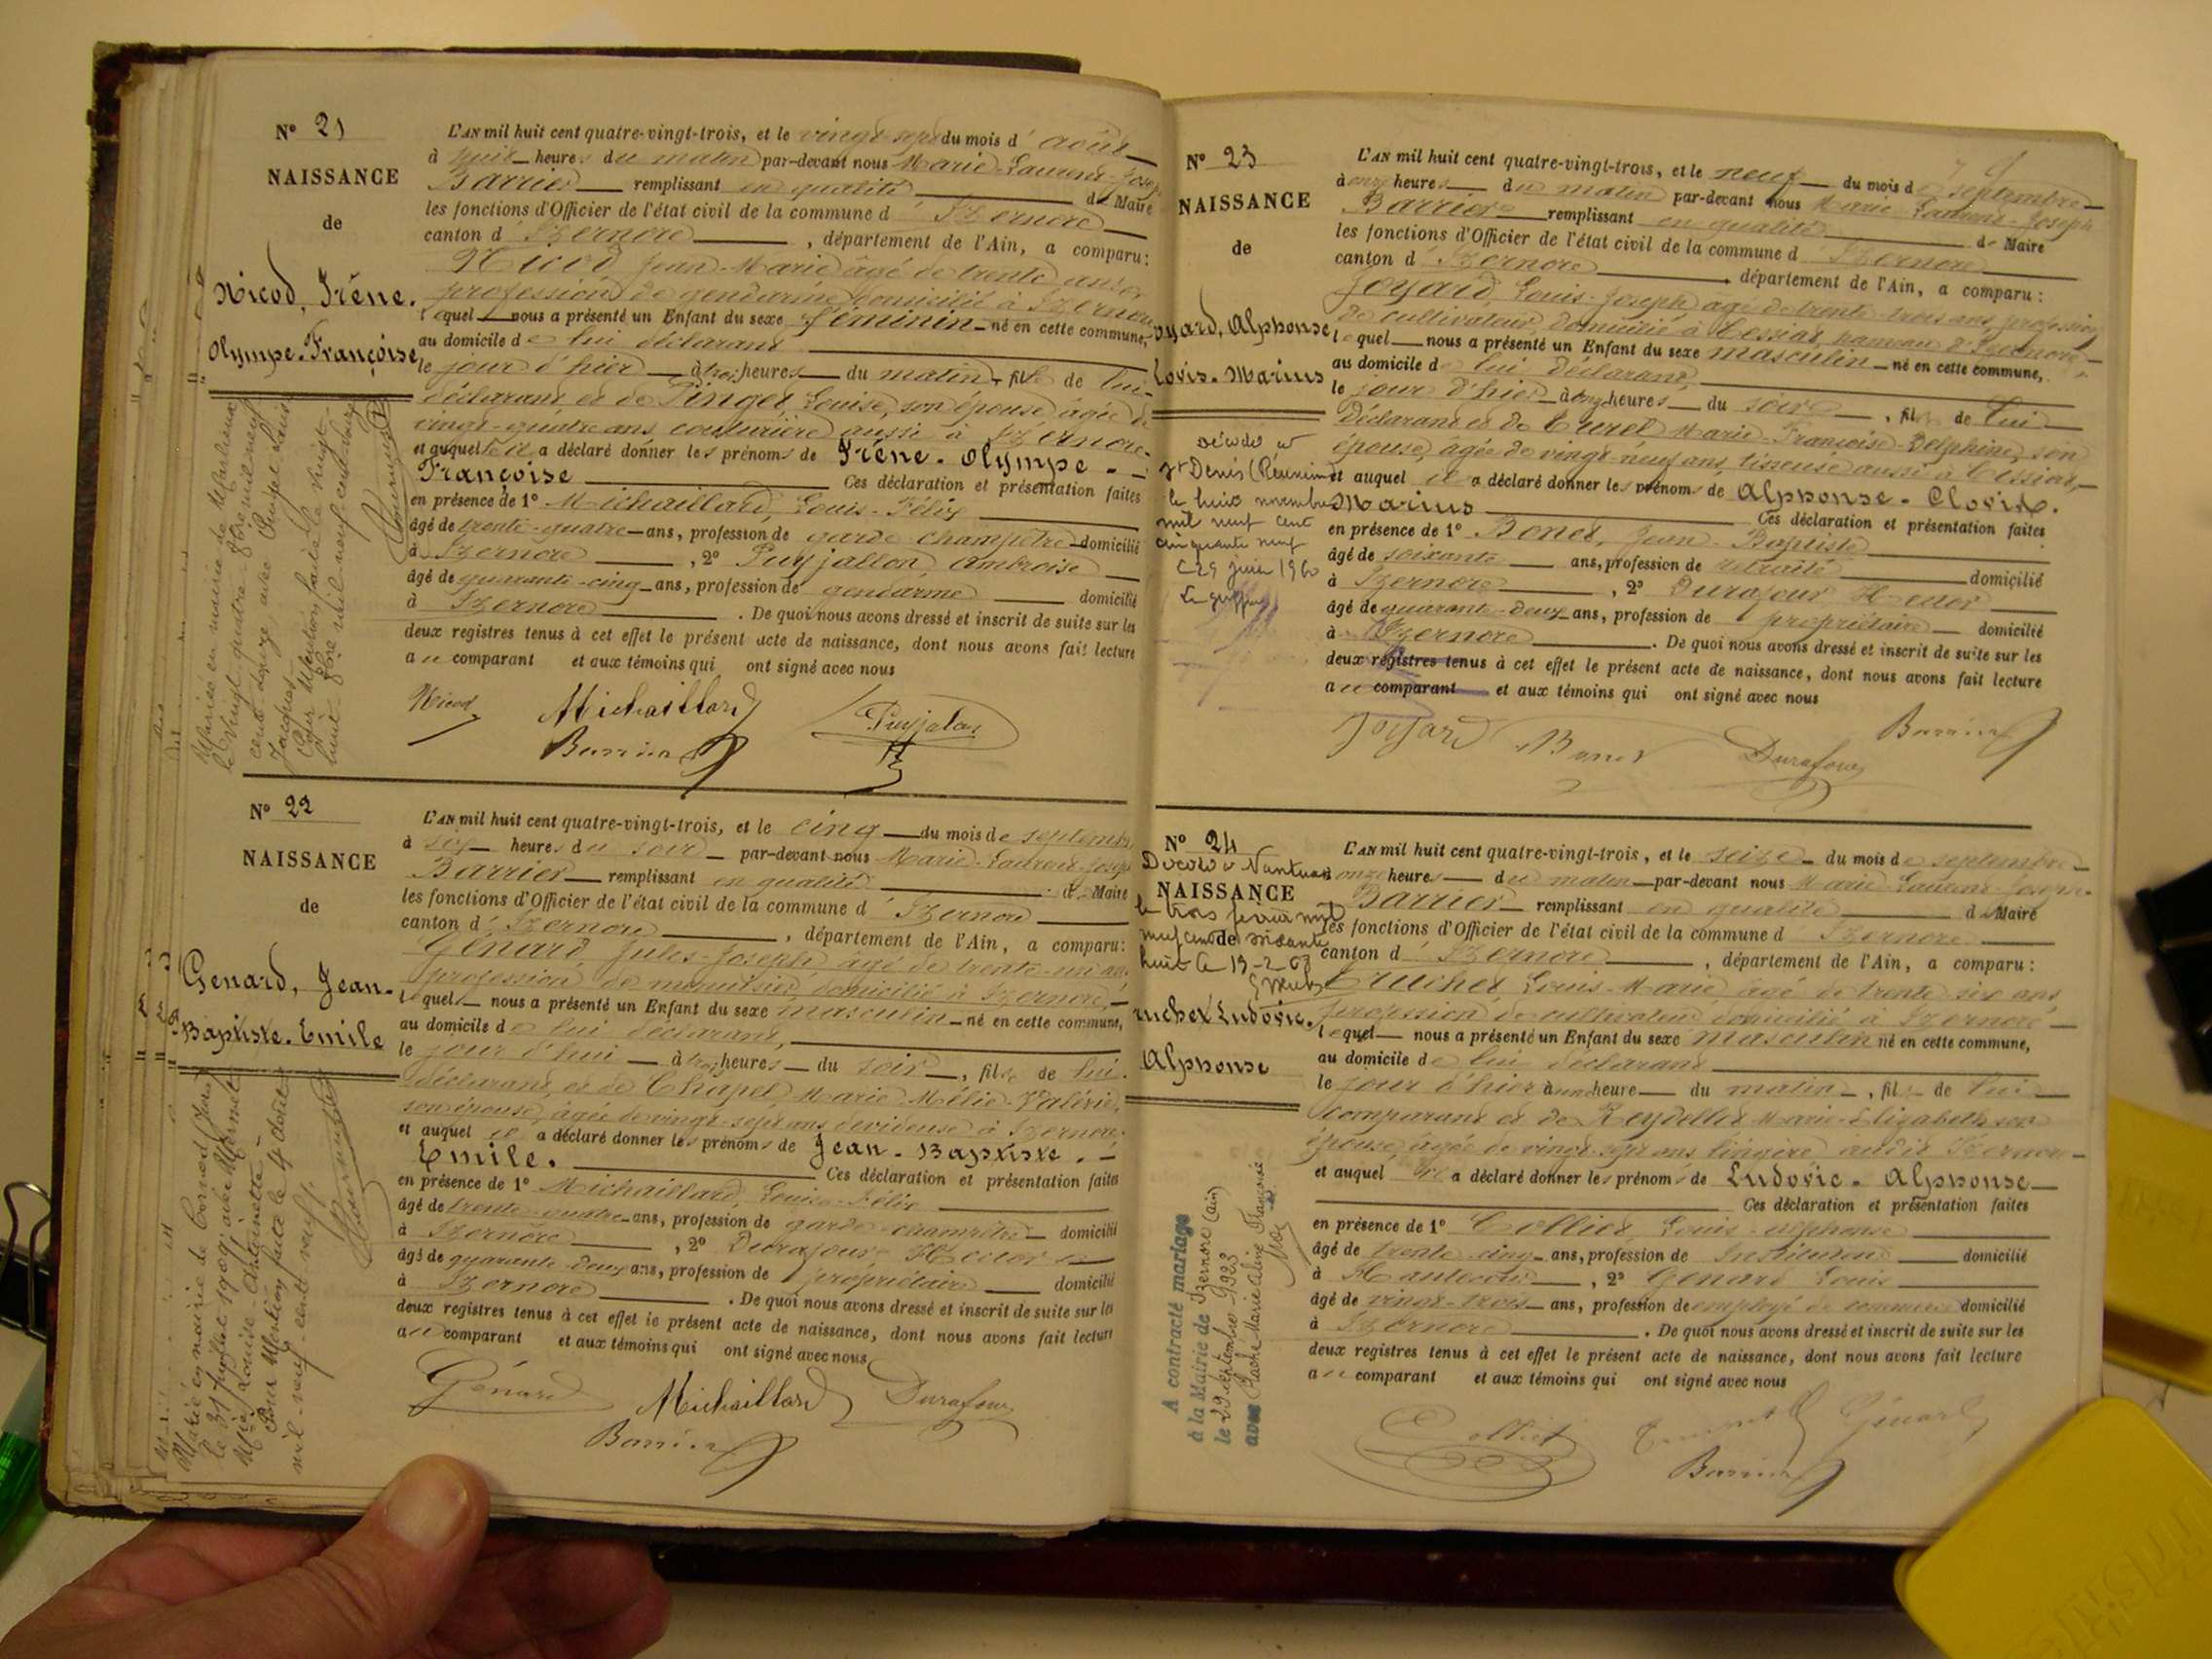 N° 21
NAISSANCE
de
Nicod, Irène.
Olympe-Françoise
L'AN mil huit cent quatre-vingt-trois, et le vingt-sept du mois d'août
à huit heures du matin par-devant nous Marie-Laurent-Joseph
Barrier remplissant en qualité de Maire
les fonctions d'Officier de l'état civil de la commune d'Izernore
canton d'Izernore, département de l'Ain, a comparu:
Nicod Jean-Marie âgé de trente ans
profession de gendarme domicilié à Izernore
lequel nous a présenté un Enfant du sexe féminin né en cette commune,
au domicile de lui déclarant
le jour d'hier à trois heures du matin, fille de lui
déclarant et de Pinget Louise, son épouse âgée de
vingt-quatre ans couturière aussi à Izernore
et auquel il a déclaré donner les prénoms de Irène-Olympe-
Françoise Ces déclaration et présentation faites
en présence de 1° Michaillard, Louis-Félix
âgé de trente-quatre ans, profession de garde-champêtre domicilié
à Izernore, 2° Puyjallon Ambroise
âgé de quarante-cinq ans, profession de gendarme domicilié
à Izernore. De quoi nous avons dressé et inscrit de suite sur les
deux registres tenus à cet effet le présent acte de naissance, dont nous avons fait lecture
au comparant et aux témoins qui ont signé avec nous
Nicod Michaillard Puyjalon
Barrier
N° 22
NAISSANCE
de
Genard, Jean-
Baptiste-Emile
Marié en mairie de
le 31 juillet 1909, avec Mermet
Marie Louise Antoinette
Pour Mention faite le 4 août
mil-neuf-cent neuf.
L'AN mil huit cent quatre-vingt-trois, et le cinq du mois de septembre
à six heures du soir par-devant nous Marie-Laurent-Joseph
Barrier remplissant en qualité de Maire
les fonctions d'Officier de l'état civil de la commune d'Izernore
canton d'Izernore, département de l'Ain, a comparu:
Génard, Jules-Joseph âgé de trente-un ans
profession de menuisier domicilié à Izernore
lequel nous a présenté un Enfant du sexe masculin né en cette commune,
au domicile de lui déclarant,
le jour d'hui à trois heures du soir, fils de lui
déclarant et de Chapel Marie Mélie-Valérie,
son épouse, âgée de vingt-sept ans dévideuse à Izernore
et auquel il a déclaré donner les prénoms de Jean-Baptiste-
Emile. Ces déclaration et présentation faites
en présence de 1° Michaillard Louis-Félix
âgé de trente-quatre ans, profession de garde-champêtre domicilié
à Izernore, 2° Durafour Hector
âgé de quarante-deux ans, profession de propriétaire domicilié
à Izernore. De quoi nous avons dressé et inscrit de suite sur les
deux registres tenus à cet effet le présent acte de naissance, dont nous avons fait lecture
au comparant et aux témoins qui ont signé avec nous
Génard Michaillard Durafour
Barrier
N° 23
NAISSANCE
de
oyard, Alphonse
lovis-Marius
Décédé à
St Denis (Réunion)
le huit novembre
mil neuf cent
cinquante neuf
Le 29 juin 1960
L'AN mil huit cent quatre-vingt-trois, et le neuf du mois de septembre
à onze heures du matin par-devant nous Marie Laurent-Joseph
Barrier remplissant en qualité de Maire
les fonctions d'Officier de l'état civil de la commune d'Izernore
canton d'Izernore département de l'Ain, a comparu:
Joyard, Louis-Joseph âgé de trente-trois ans profession
de cultivateur domicilié à Cessiat, hameau d'Izernore,
lequel nous a présenté un Enfant du sexe masculin né en cette commune,
au domicile de lui déclarant,
le jour d'hier à onze heures du soir, fils de lui
déclarant et de Turel Marie-Françoise-Delphine, son
épouse, âgée de vingt-neuf ans tisseuse aussi à Cessiat,
et auquel il a déclaré donner les prénoms de Alphonse-Clovis.
Marius Ces déclaration et présentation faites
en présence de 1° Bonet, Jean-Baptiste
âgé de soixante ans, profession de retraité domicilié
à Izernore, 2° Durafour Hector
âgé de quarante-deux ans, profession de propriétaire domicilié
à Izernore. De quoi nous avons dressé et inscrit de suite sur les
deux registres tenus à cet effet le présent acte de naissance, dont nous avons fait lecture
au comparant et aux témoins qui ont signé avec nous
Joyard Bonet Durafour Barrier
N° 24
Décédé à Nantua
NAISSANCE
le trois février mil
neuf cent soixante
de
huit le 19-2-68
ruchet Ludovic.
Alphonse
A contracté mariage
à la Mairie de Izernore (Ain)
le 29 septembre 1923
avec Marie Aline Françoise
L'AN mil huit cent quatre-vingt-trois, et le seize du mois de septembre
onze heures du matin par-devant nous Marie Laurent-Joseph
Barrier remplissant en qualité de Maire
les fonctions d'Officier de l'état civil de la commune d'Izernore
canton d'Izernore, département de l'Ain, a comparu:
Truchet, Louis-Marie âgé de trente six ans
profession de cultivateur domicilié à Izernore
lequel nous a présenté un Enfant du sexe masculin né en cette commune,
au domicile de lui déclarant
le jour d'hier à une heure du matin, fils de lui
comparant et de Reydellet Marie-Elizabeth son
épouse, âgée de vingt-sept ans lingère audit Izernore
et auquel il a déclaré donner les prénoms de Ludovic-Alphonse
Ces déclaration et présentation faites
en présence de 1° Colliet, Louis-Alphonse
âgé de trente cinq ans, profession de Instituteur domicilié
à, 2° Génard Louis
âgé de vingt-trois ans, profession de employé de commerce domicilié
à Izernore. De quoi nous avons dressé et inscrit de suite sur les
deux registres tenus à cet effet le présent acte de naissance, dont nous avons fait lecture
au comparant et aux témoins qui ont signé avec nous
Colliet Génard
Barrier